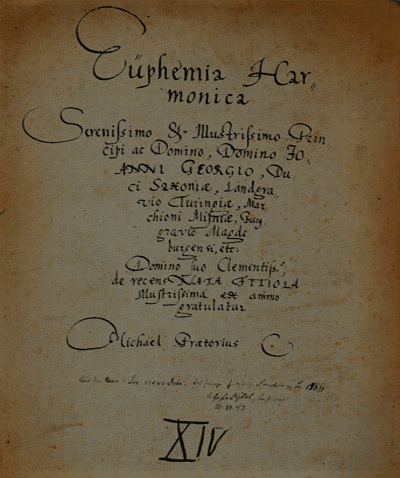 Eüphemia Har„
monica
Serenissimo & Illustrissimo Prin„
cipi ac Domino, Domino JO„
ANNI GEORGIO, Du„
ci Saxoniæ, Landgra„
vio Thuringiæ, Mar„
chioni Misniæ, Bug„
gravio Magde„
burgensi, etc.
Domino suo Clementiss.º
de recens NATA FILIOLA
Illustrissima ex animo
gratulatur
Michael Prætorius C
XIV